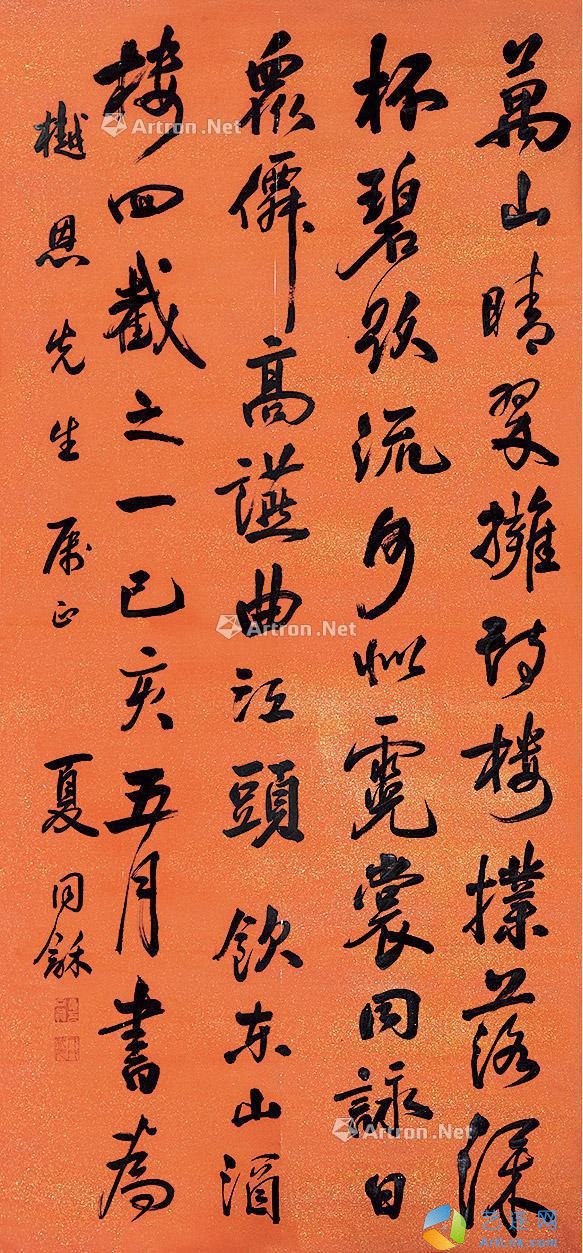 萬山晴翠擁詩樓撲落深
杯碧欲流何似霓裳同詠日
眾僊高讌曲江頭 飲東山酒
樓四截之一己亥五月書為
樾恩先生 属正 夏同龢
Artron.Net
Artron.Net
Artron.Net
Artron.Net